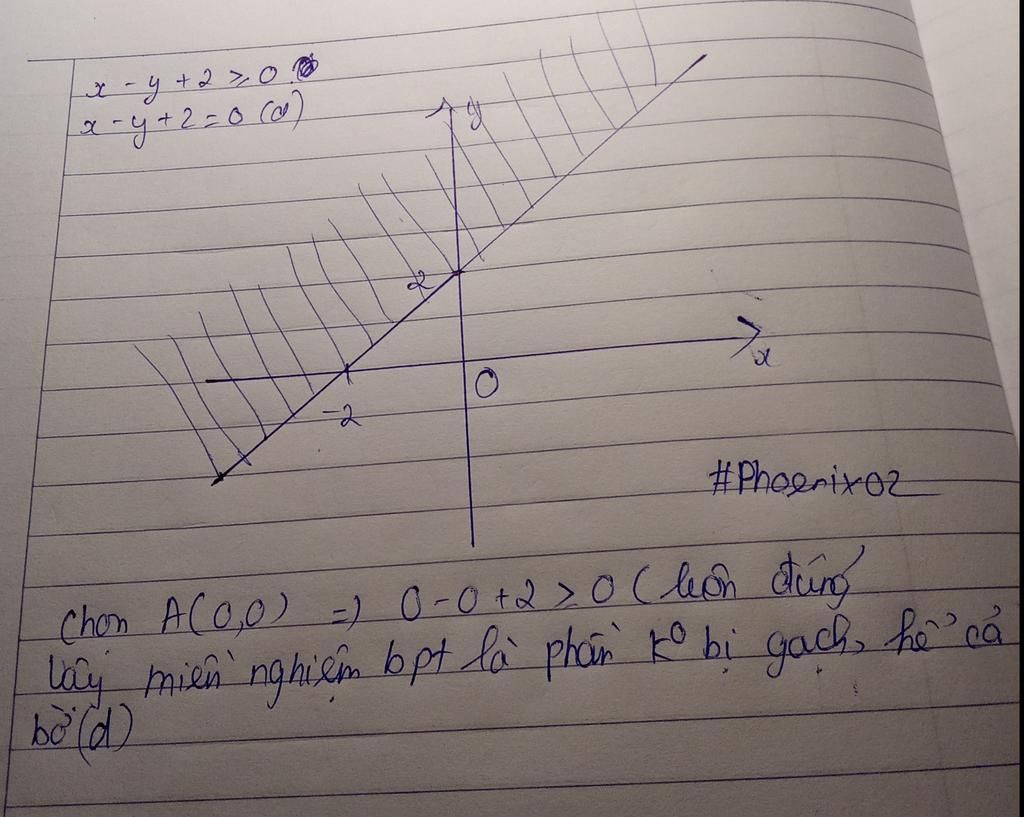 x - y + 2 ≥ 0
x - y + 2 = 0 (d)
y
2
x
O
-2
#Phoenix02
Chọn A(0,0) => 0-0+2 ≥ 0 (luôn đúng
Vậy miền nghiệm bpt là phần k° bị gạch, kể cả
bờ (d)